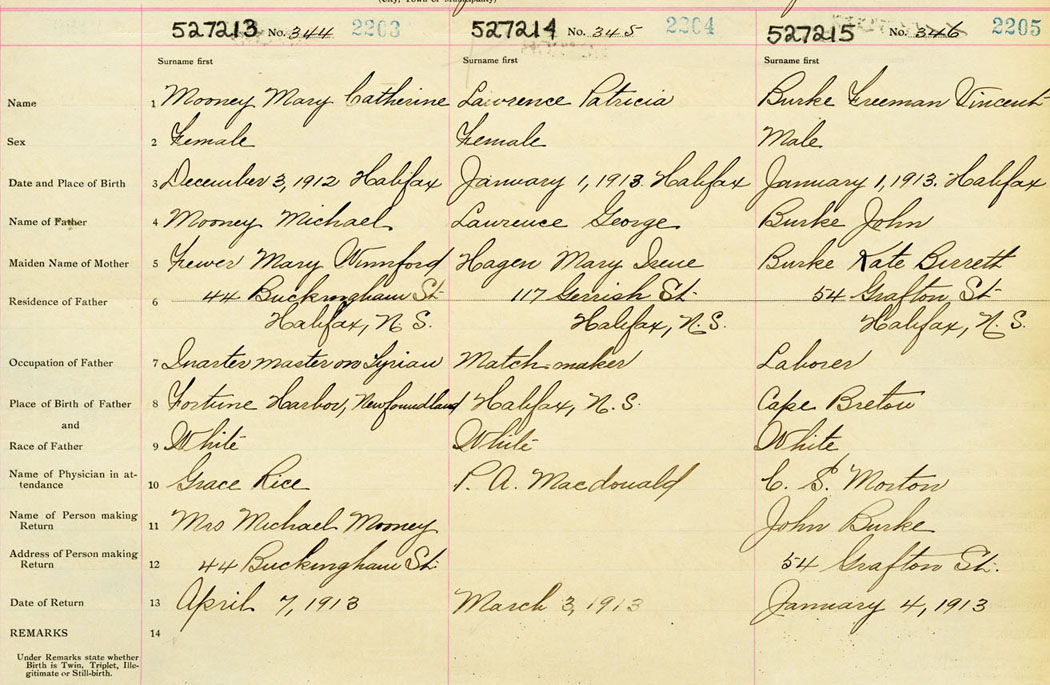 (City, Town or Municipality)
527213 No. 344 2203 527214 No. 345 2204 527215 No. 346 2205
Surname first Surname first Surname first
Name 1 Mooney Mary Catherine Lawrence Patricia Burke Freeman Vincent
Sex 2 Female Female Male
Date and Place of Birth 3 December 3, 1912 Halifax January 1, 1913. Halifax January 1, 1913. Halifax
Name of Father 4 Mooney Michael Lawrence George Burke John
Maiden Name of Mother 5 Fewer Mary Winnford Hagen Mary Irene Burke Kate Birrett
Residence of Father 6 44 Buckingham St 117 Gerrish St 54 Grafton St
Halifax, N.S. Halifax, N.S. Halifax, N.S.
Occupation of Father 7 Quartermaster on Syrian Match maker Laborer
Place of Birth of Father 8 Fortune Harbor, Newfoundland Halifax, N.S. Cape Breton
and
Race of Father 9 White White White
Name of Physician in at-
tendance 10 Grace Rice P. A. Macdonald C. S. Morton
Name of Person making
Return 11 Mrs Michael Mooney John Burke
Address of Person making
Return 12 44 Buckingham St. 54 Grafton St.
Date of Return 13 April 7, 1913 March 3, 1913 January 4, 1913
REMARKS 14
Under Remarks state whether
Birth is Twin, Triplet, Ille-
gitimate or Still-birth.